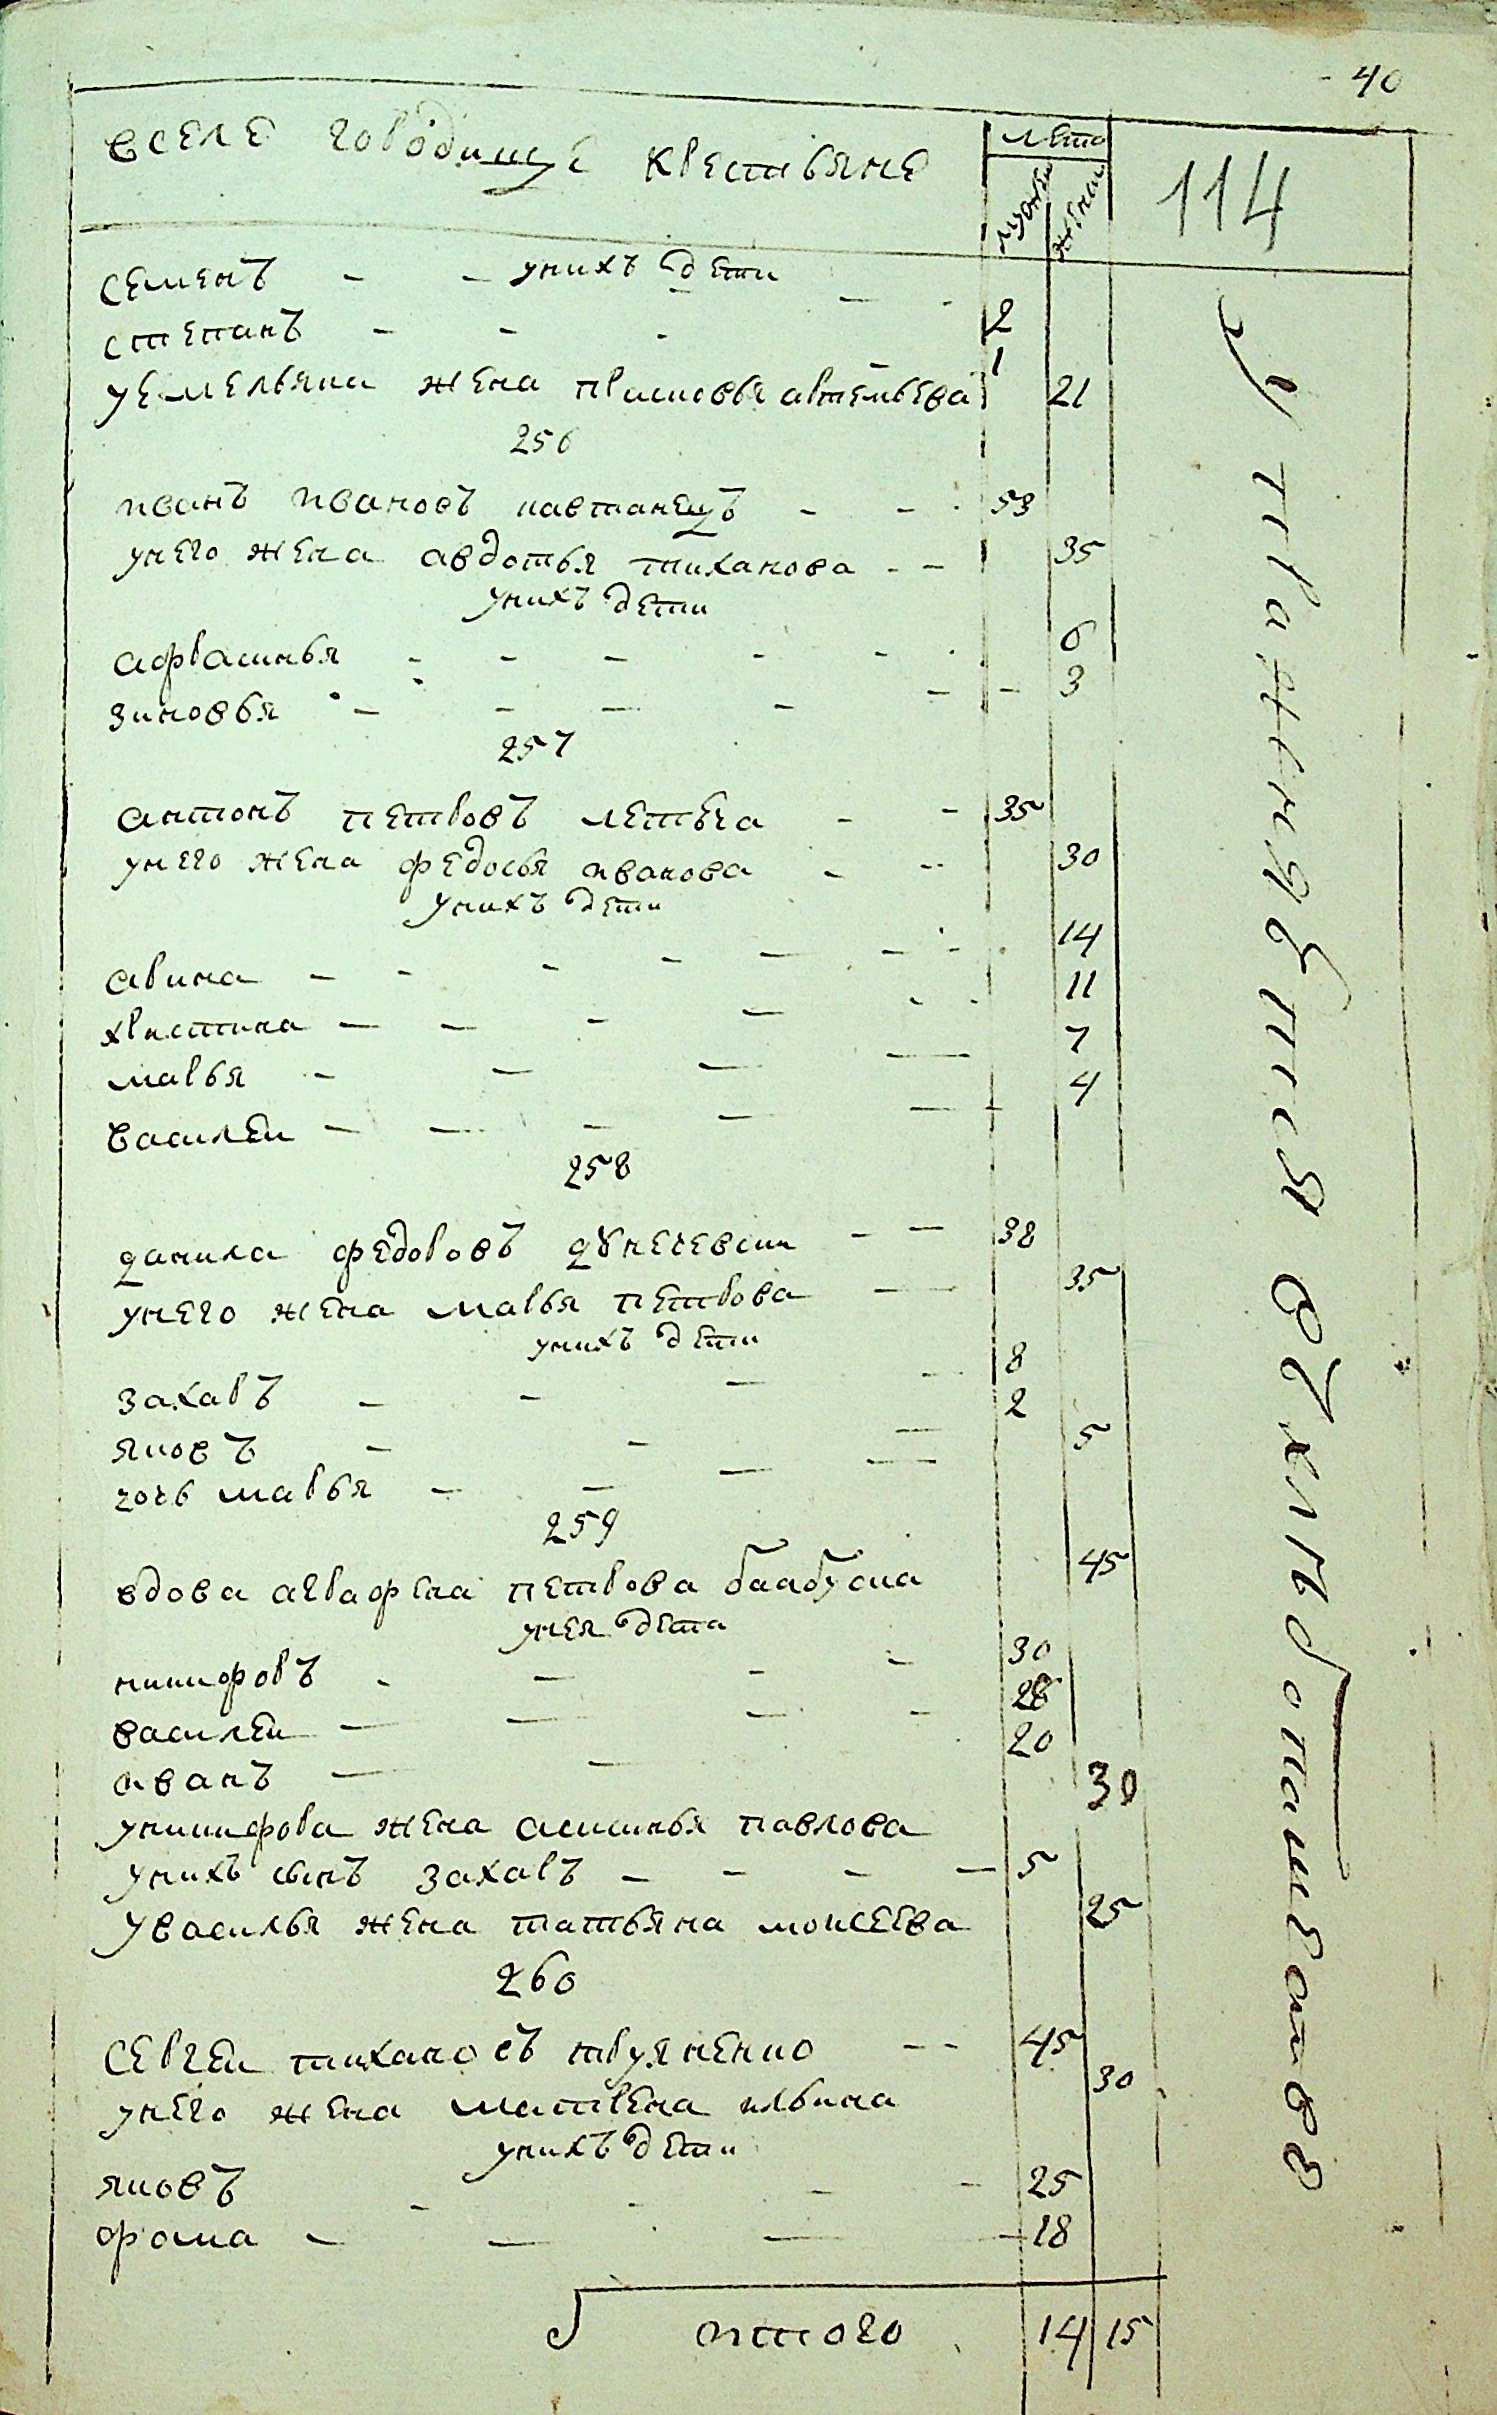 40
вселе городище крестьяне
лета
мужеи
женеи
114
семенъ - - унихъ дети 2
степанъ - - - 1
уемельяна жена прасковья артемьева 21
256
иванъ ивановъ кавтанецъ - - 53
унего жена авдотья тиханова - - 35
унихъ дети
афрасинья - - - - - 6
зиновья - - - - - - 3
257
антонъ петровъ - - 35
унего жена федосья иванова - - 30
унихъ дети
арина - - - - - - - 14
христина - - - - - - 11
марья - - - - 7
василеи - - - - - 4
258
данила федоровъ - - 38
унего жена марья петрова - - 35
унихъ дети
захаръ - - - - 8
яковъ - - - 2
дочь марья - - - - 5
259
вдова аграфена петрова 45
унея дети
никифоръ - - - - 30
василеи - - - - 28
иванъ - - 20
уникифора жена аксинья павлова 30
унихъ сынъ захаръ - - - - 5
увасилья жена татьяна моисеева 25
260
сергеи тихановъ - - 45
унего жена матрена ильина 30
унихъ дети
яковъ - - - - 25
фома - - - - 18
итого 14 15